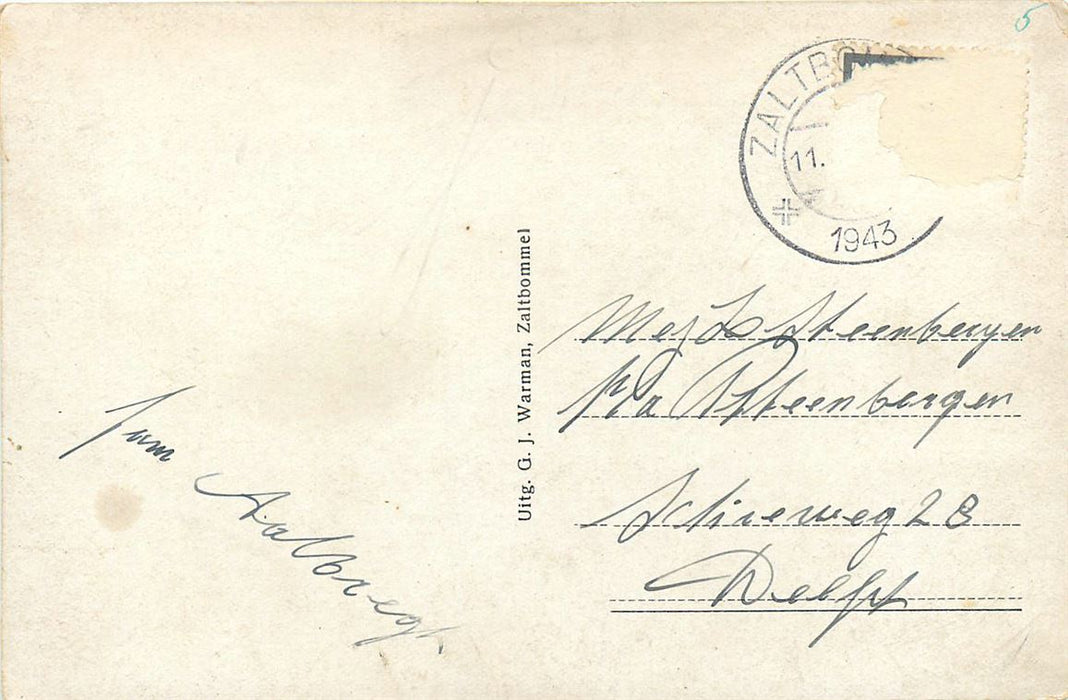 5
ZALTBO
11.
1943
Uitg. G. J. Warman, Zaltbommel
Mej Steenbergen
p/a P Steenbergen
Schieweg 28
Delft
Fam
Aalbregt